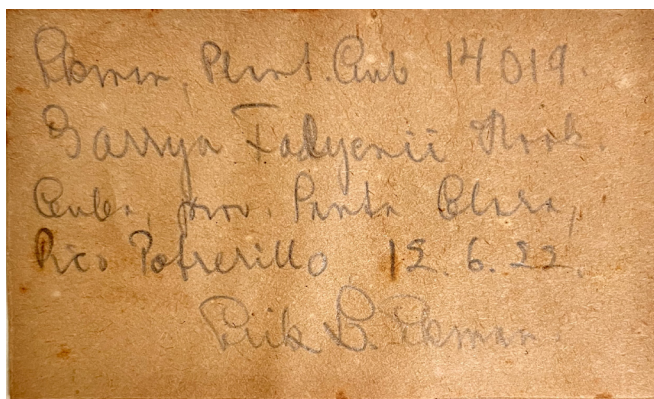 Ekman, Plant. Cub 14019.
Garrya Fadyenii Hook.
Cuba, prov. Santa Clara,
Pico Potrerillo 12. 6. 22.
Erik L. Ekman